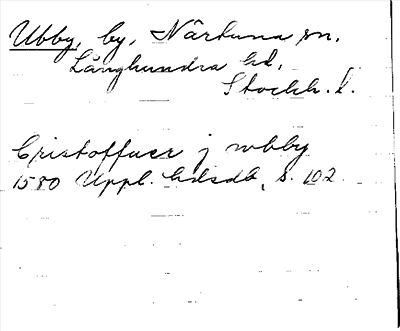 Ubby, by, Närtuna sn,
Långhundra hd,
Stockh. l.
Cristoffuer j wbby
1580 Uppl. hdsdb, s. 102